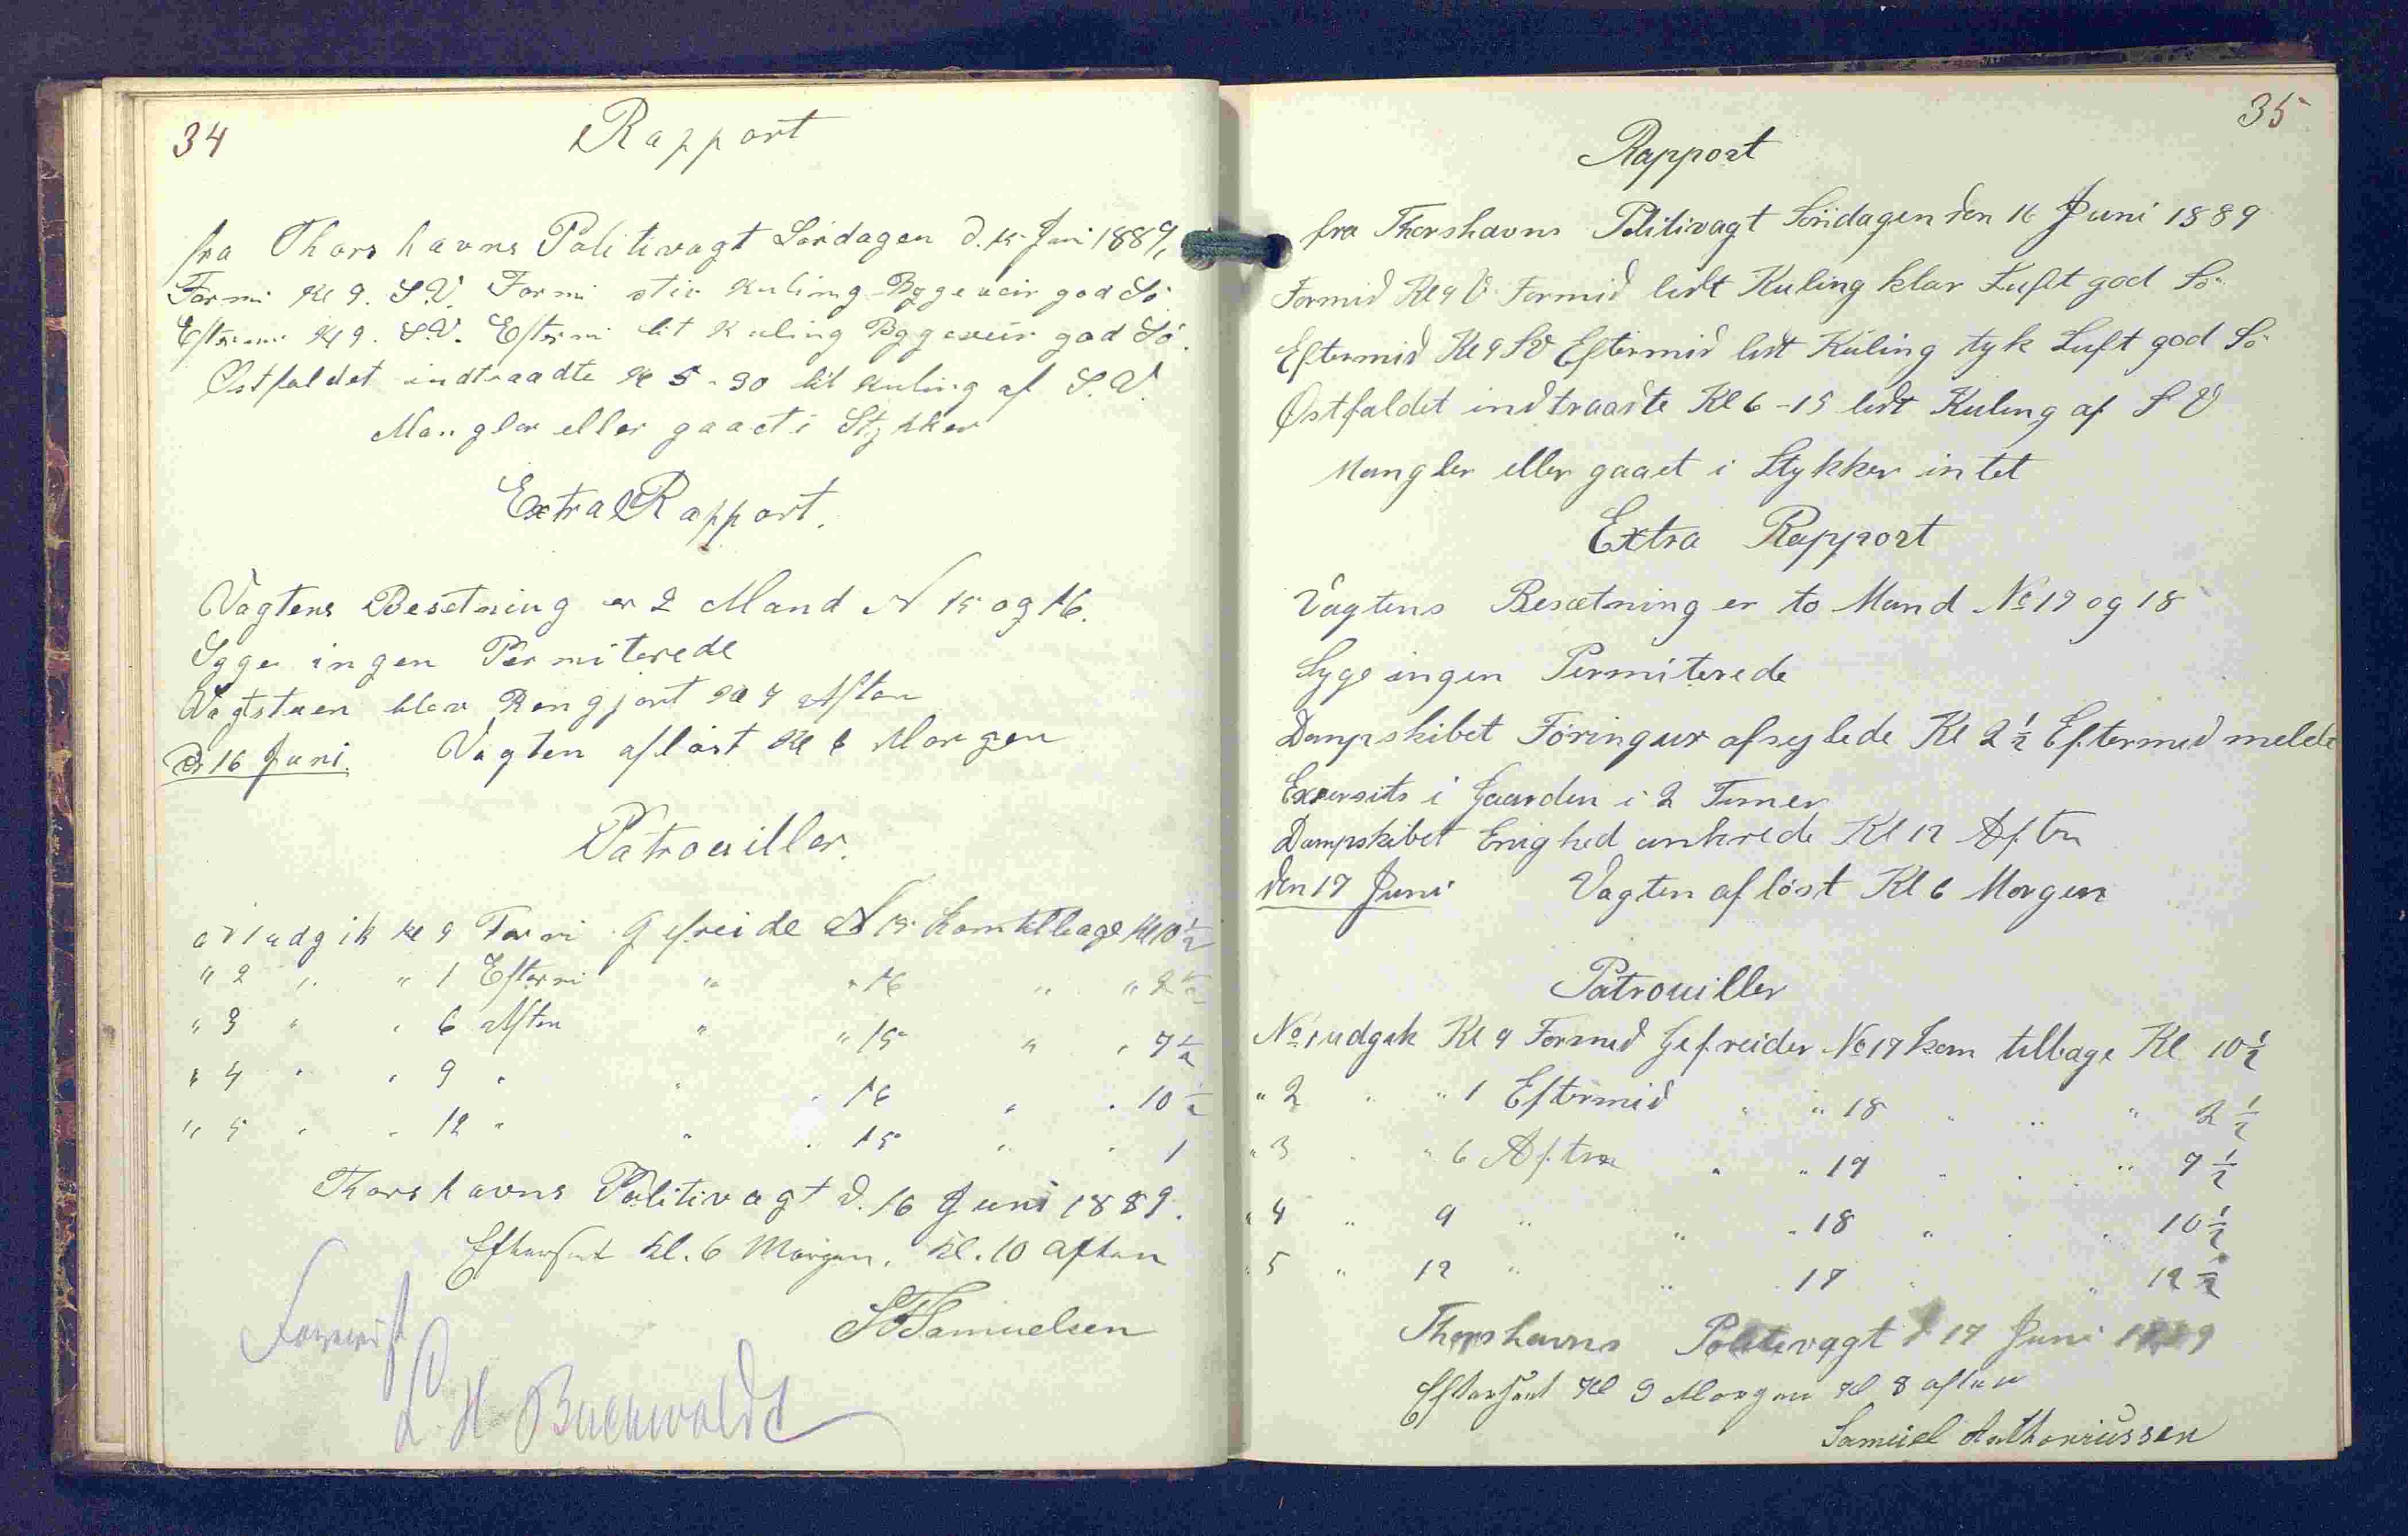 34
Rapport
fra Thorshavns Politivagt Lördagen d. 15 Juni 1889,
Formi Kl 9. S.V. Formi stiv Kuling Byggeveir god Sö
Eftermi Kl 9. S.V. Eftermi lit Kuling Byggeveir god Sö.
Østfaldet indtraadte Kl 5-30 lit Kuling af S.V.
Mangler eller gaaet i Stykker
Extra Rapport.
Vagtens Besetning er 2 Mand N 15 og 16.
Syge ingen Permiterede
Vagtstuen blev Rengjort Kl 7 Aften
D 16 Juni. Vagten aflöst Kl 6 Morgen
Patrouiller.
N 1 udgik Kl 9 Formi Gefreide N 15 kom tilbage Kl 10 1/2
" 2 " " 1 Eftermi " " 16 " " 2 1/2
" 3 " " 6 Aften " " 15 " " 7 1/2
" 4 " " 9 " " " 16 " " 10 1/2
" 5 " " 12 " " " 15 " " 1
Thorshavns Politivagt d. 16 Juni 1889.
Efterseet Kl. 6 Morgen. Kl. 10 Aften
Samuelsen
Forevist
L H Buchwaldt
35
Rapport
fra Thorshavns Politivagt Söndagen den 16 Juni 1889
Formid Kl 9 V Formid lidt Kuling klar Luft god Sö
Eftermid Kl 9 SV Eftermid lidt Kuling tyk Luft god Sö
Østfaldet indtraadte Kl 6-15 lidt Kuling af S V
Mangler eller gaaet i Stykker intet
Extra Rapport
Vagtens Besætning er to Mand No 17 og 18
Syge ingen Permiterede
Dampskibet Föringur afseylede Kl 2 1/2 Eftermid melde
Exersits i Gaarden i 2 Timer
Dampskibet Enighed ankrede Kl 12 Aften
den 17 Juni Vagten aflöst Kl 6 Morgen
Patrouiller
No 1 udgik Kl 9 Formid Gefreider No 17 kom tilbage Kl 10 1/2
" 2 " " 1 Eftermid " " 18 " " " 2 1/2
" 3 " " 6 Aften " " 17 " " " 7 1/2
" 4 " 9 " " " 18 " " " 10 1/2
" 5 " 12 " " " 17 " " 12 1/2
Thorshavns Politivagt d 17 Juni 1889
Efterseet Kl 9 Morgen Kl 8 aften
Samuel Anthoniussen